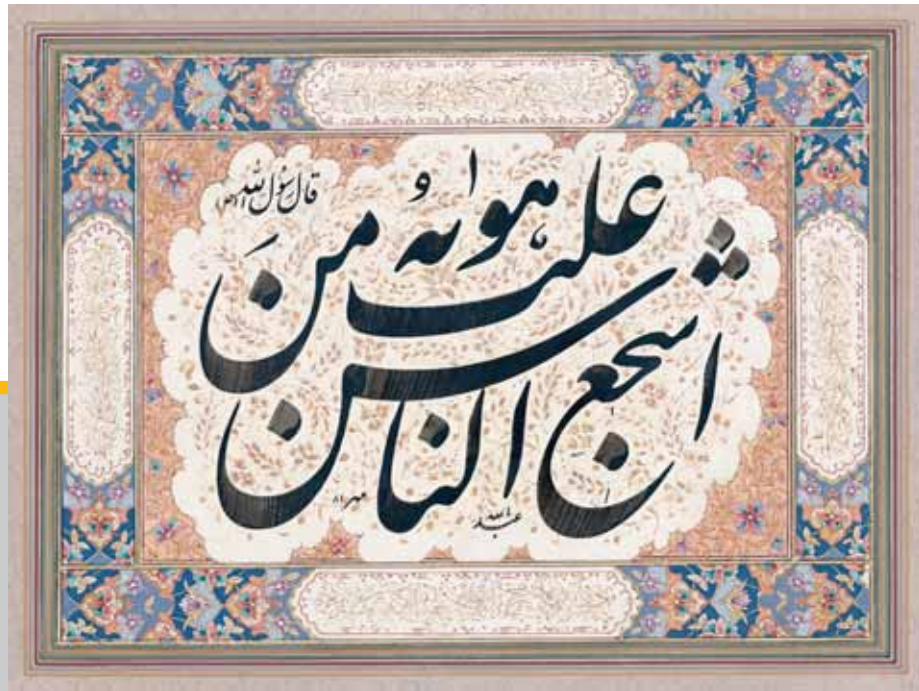 قال رسول الله (ص)
اشجع الناس من
غلب هواه
عبدالله
مهر ۸۱